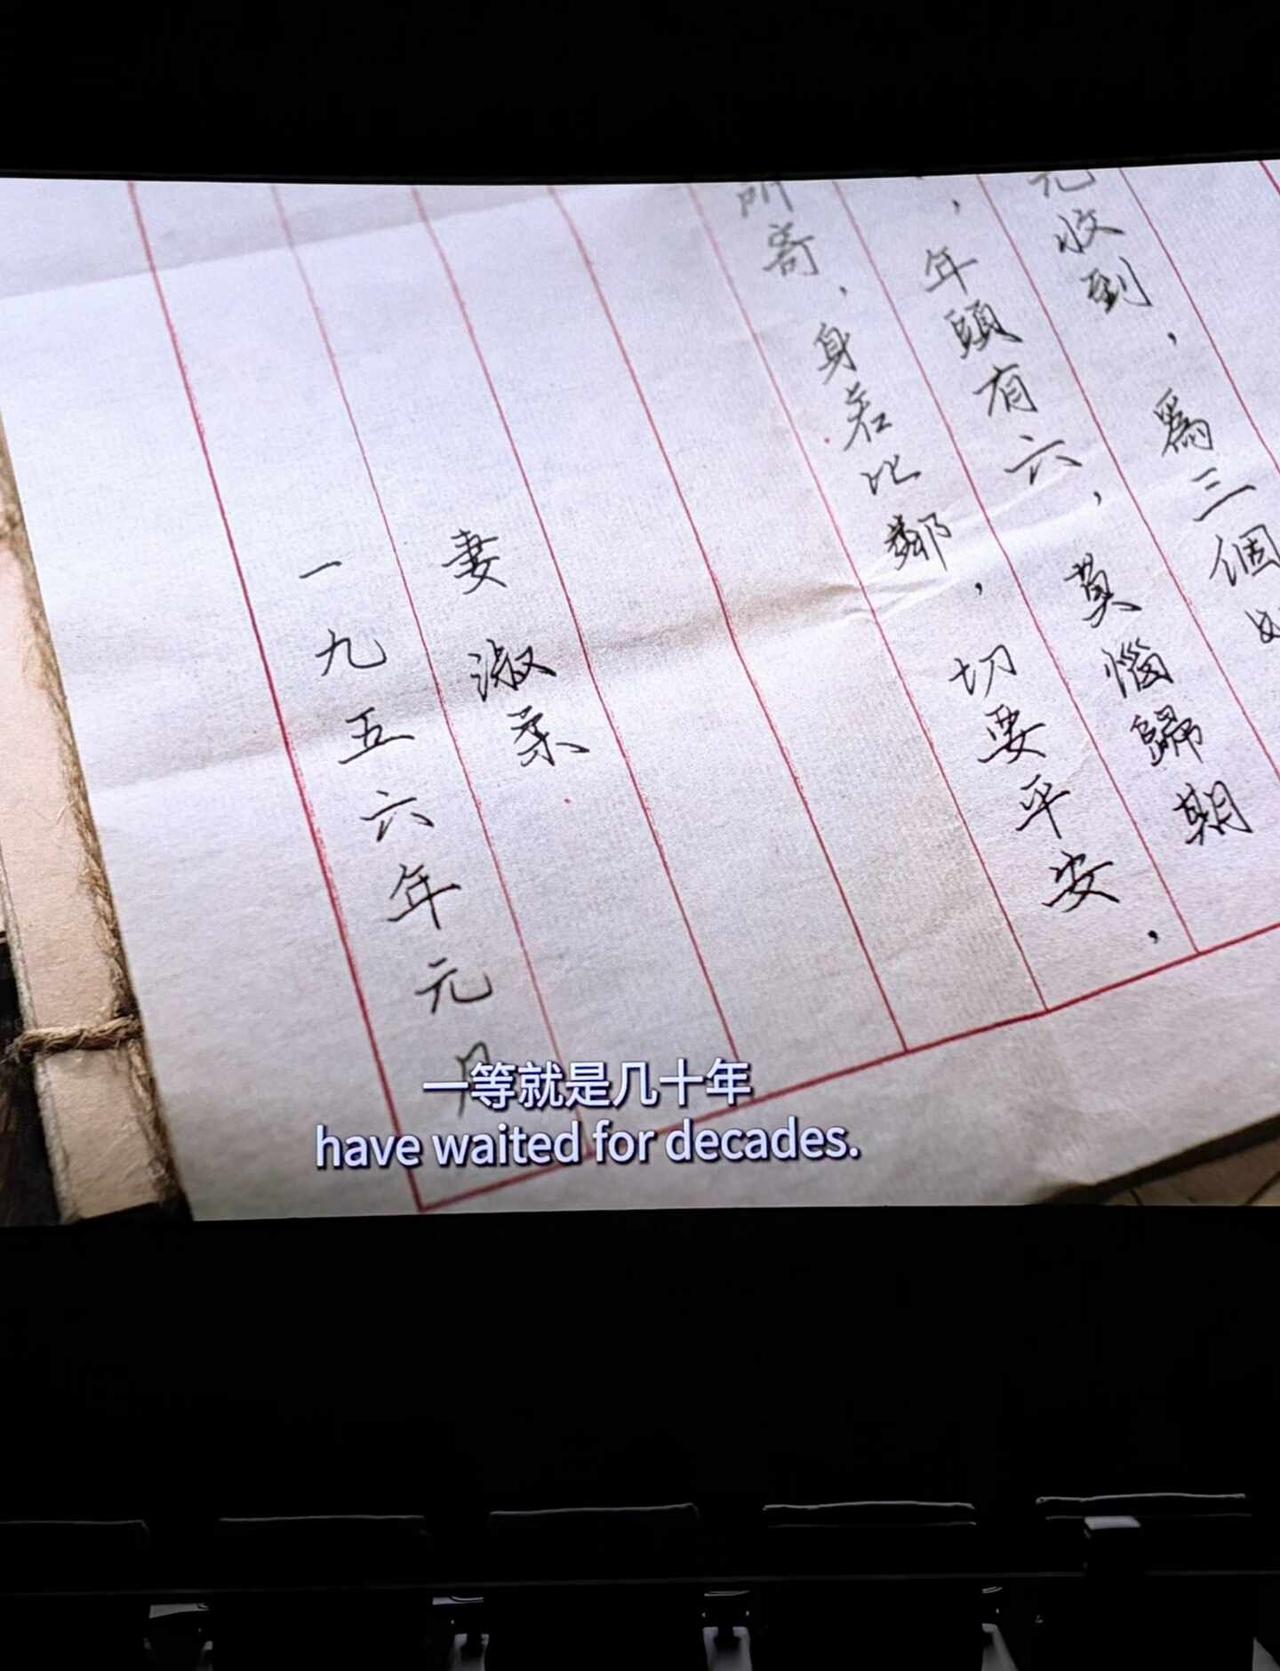 收到，爲三個
，年頭有六，莫惱歸期
所寄，身若比鄰，切要平安，
妻 淑柔
一九五六年元月
一等就是几十年
have waited for decades.